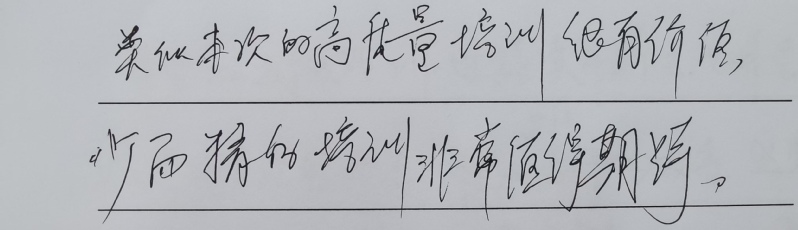 类似本次的高质量培训很有价值,
少而精的培训非常值得期待。